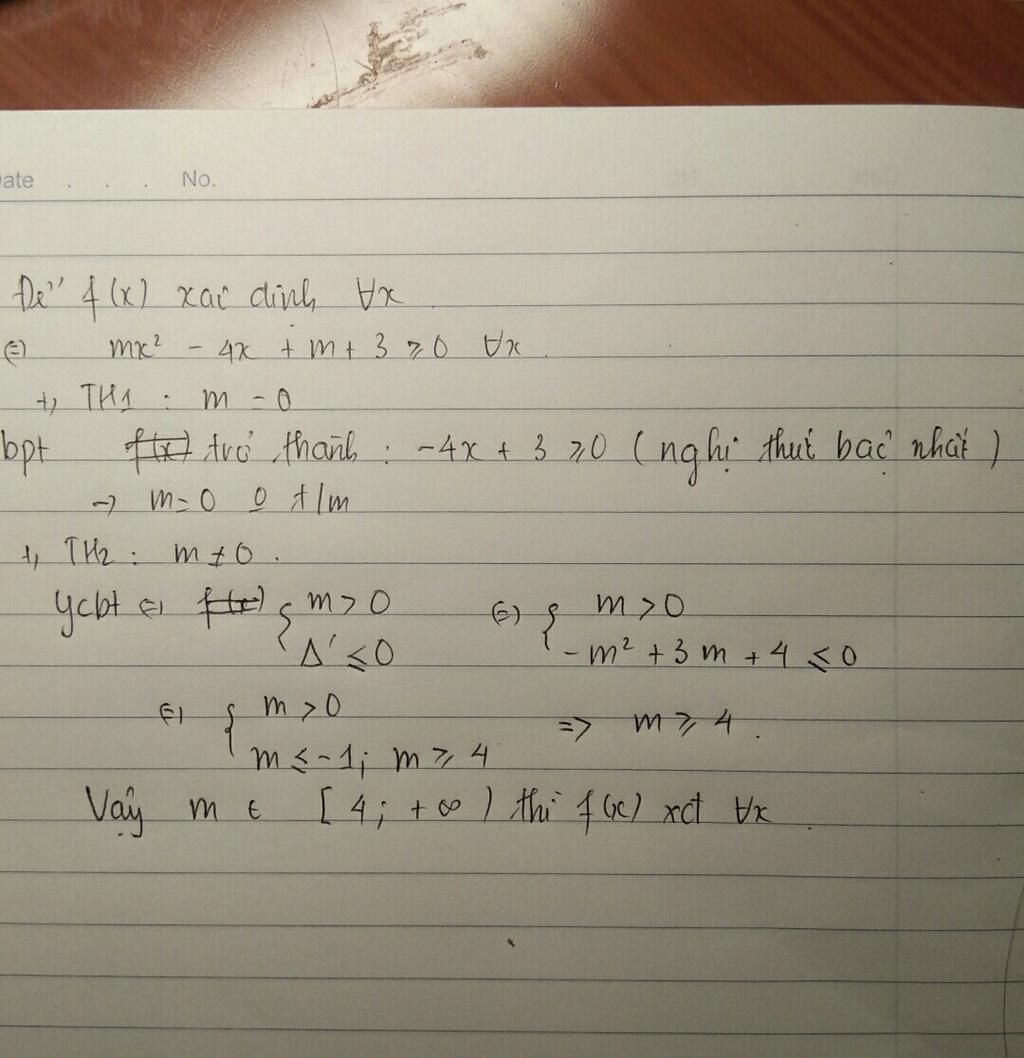 Date . . . No.
Để f(x) xác định ∀x
⇔ mx² - 4x + m + 3 ⩾ 0 ∀x.
+, TH1 : m = 0
bpt f(x) trở thành : -4x + 3 ⩾ 0 ( nghị thức bậc nhất )
→ m = 0 o t/m
+, TH2 : m ≠ 0 .
Ycbt ⇔ f(x) { m > 0 ⇔ { m > 0
Δ' ⩽ 0 - m² + 3m + 4 ⩽ 0
⇔ { m > 0 => m ⩾ 4 .
m ⩽ -1; m ⩾ 4
Vậy m ∈ [ 4 ; + ∞ ) thì f(x) xđ ∀x .